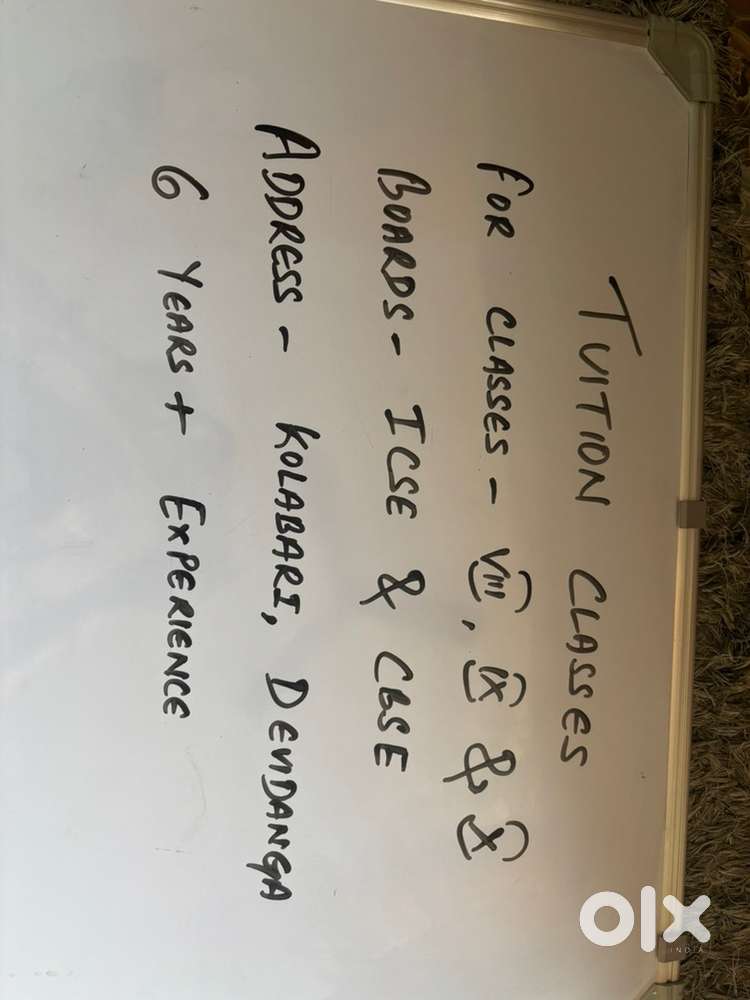 TUITION CLASSES
FOR CLASSES - VIII, IX & X
BOARDS - ICSE & CBSE
ADDRESS - KOLABARI, DENDANGA
6 YEARS + EXPERIENCE
olx
INDIA